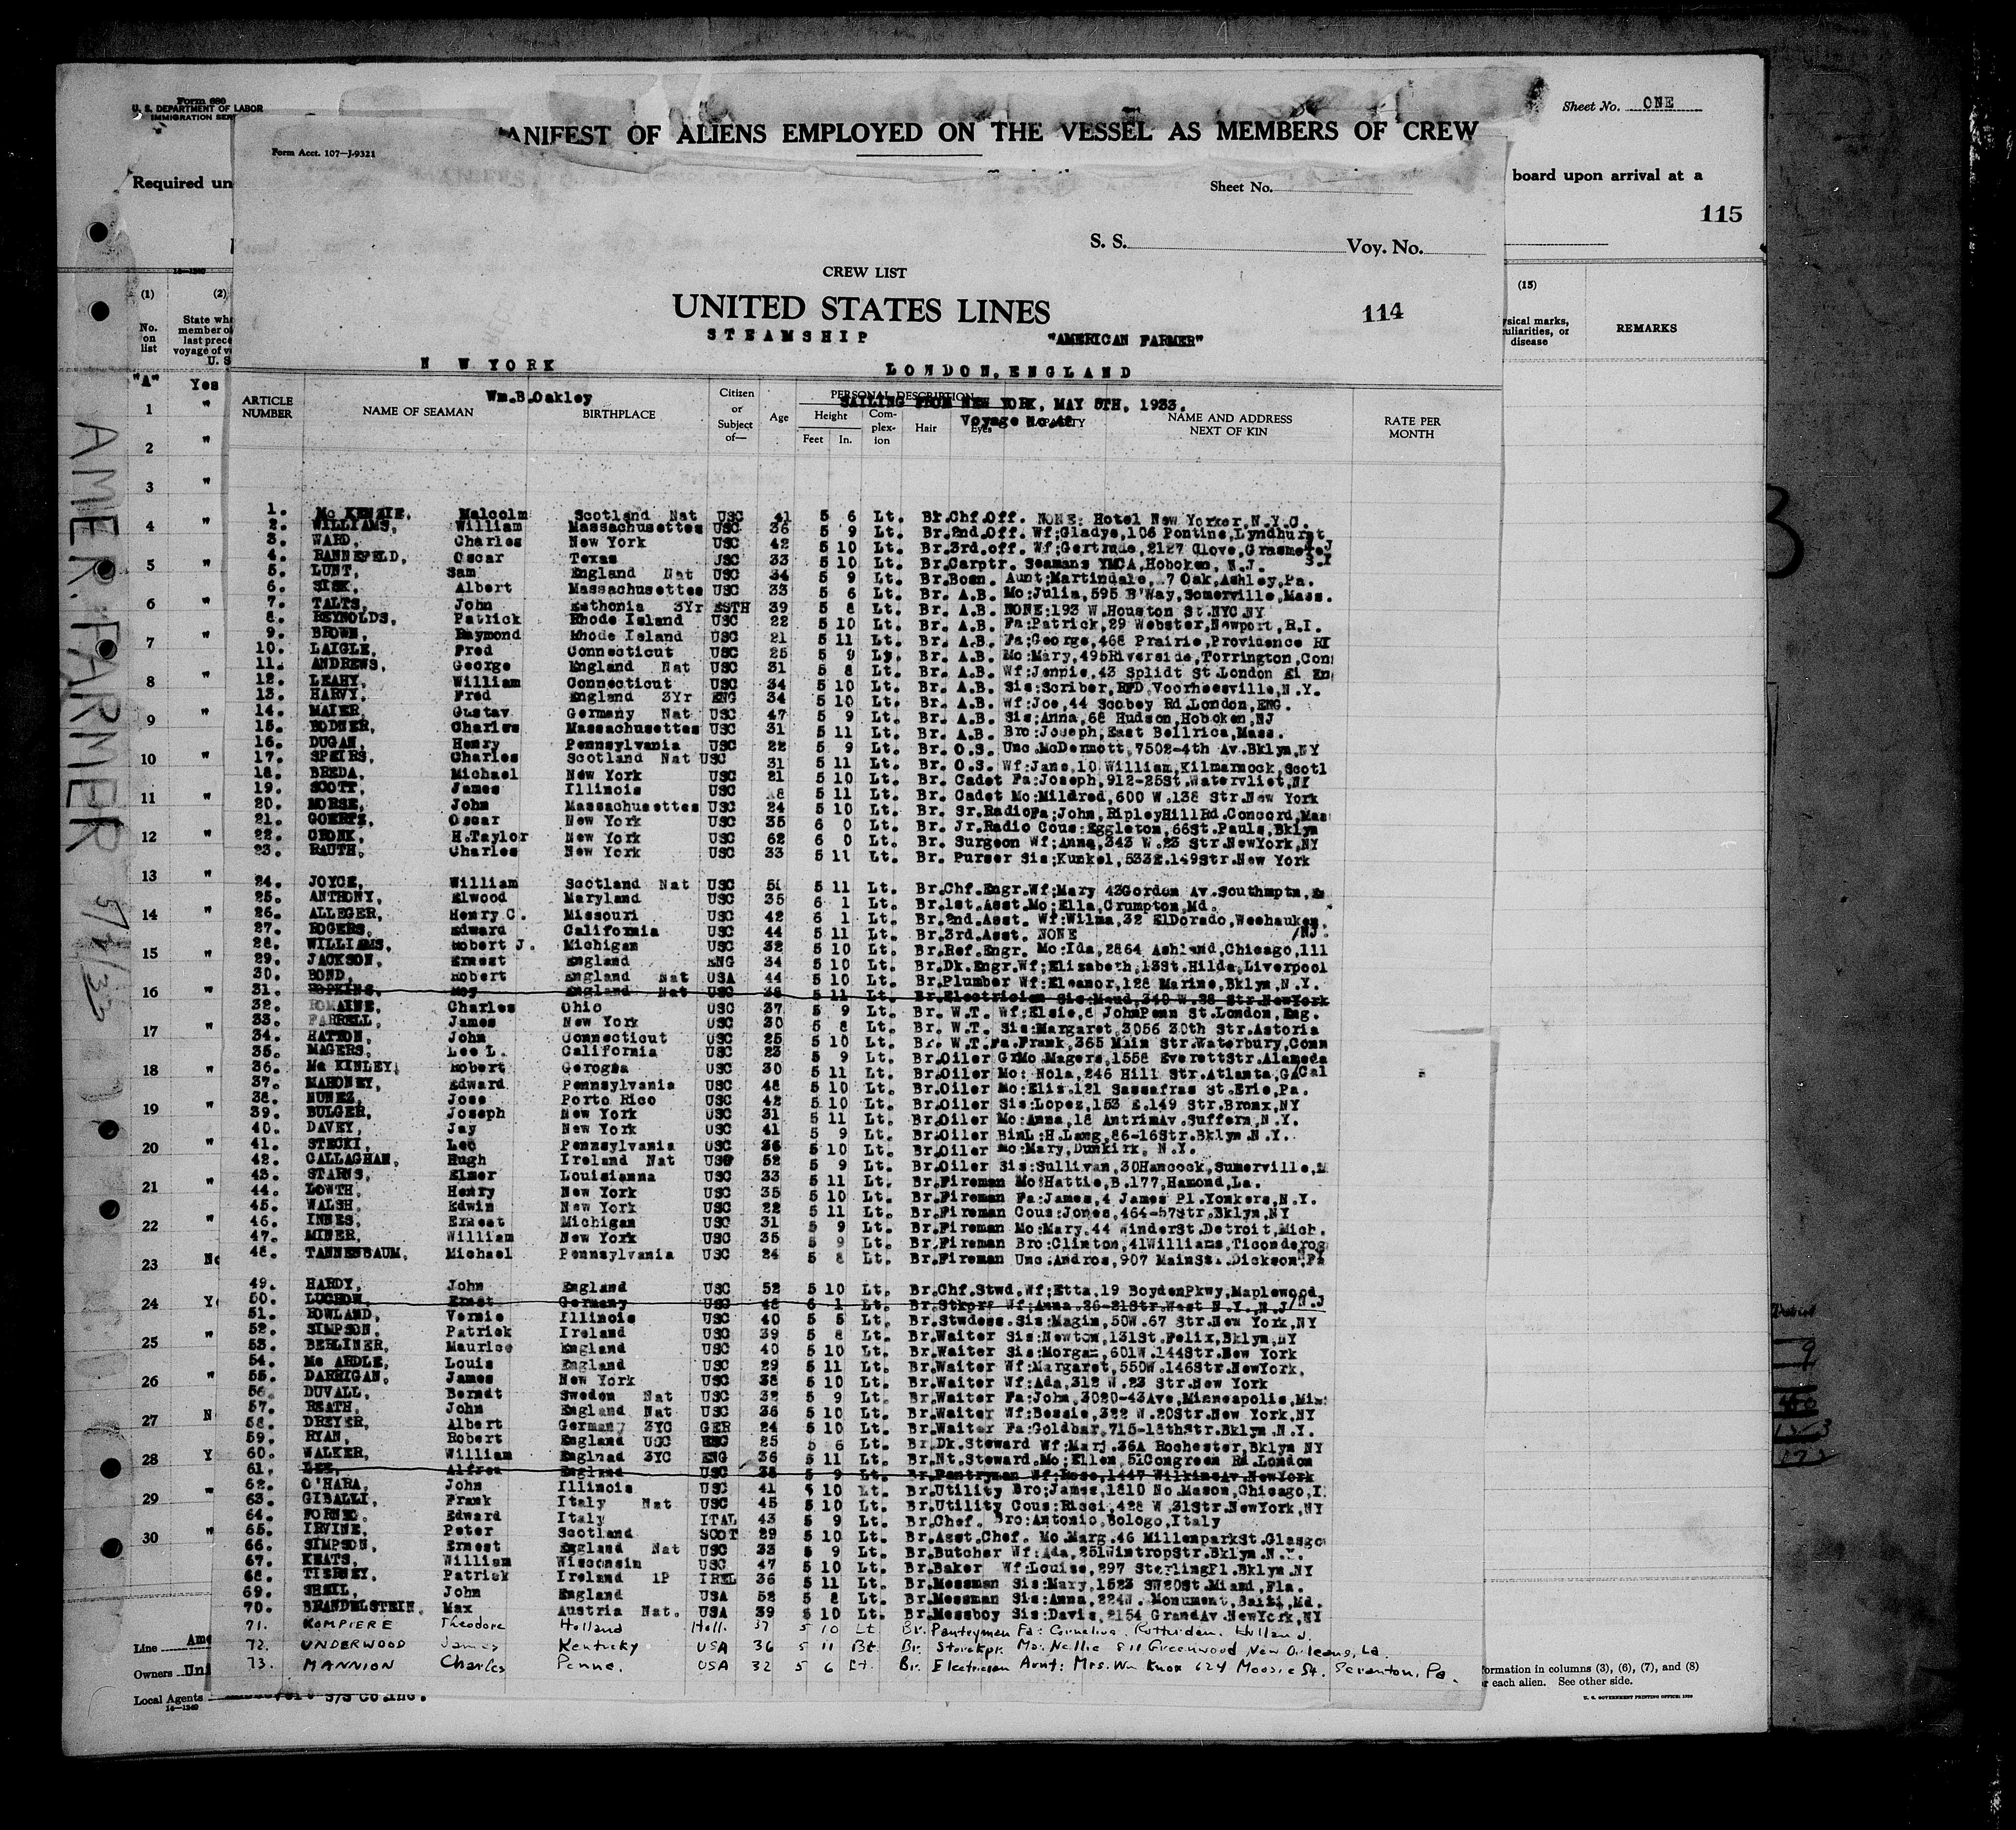 Form 680
U. S. DEPARTMENT OF LABOR
IMMIGRATION SER
Sheet No. ONE
ANIFEST OF ALIENS EMPLOYED ON THE VESSEL AS MEMBERS OF CREW
Form Acct. 107—J-9321
Required un
board upon arrival at a
Sheet No.
115
S. S. Voy. No.
CREW LIST
UNITED STATES LINES
114
STEAMSHIP "AMERICAN FARMER"
N W YORK LONDON, ENGLAND
Wm.B.Oakley
SAILING FROM NEW YORK, MAY 5TH, 1933.
Voyage No.
ARTICLE NUMBER NAME OF SEAMAN BIRTHPLACE Citizen or Subject of— Age PERSONAL DESCRIPTION Height Feet In. Complexion Hair Eyes CAPACITY NAME AND ADDRESS NEXT OF KIN RATE PER MONTH
(1) No. on list
(2) State whe member o last prece voyage of v U. S
(15) ysical marks, uliarities, or disease
REMARKS
"A" Yes
AMER. FARMER
1. Mc KENZIE, Malcolm Scotland Nat USC 41 5 6 Lt. Br.Chf.Off. NONE: Hotel New Yorker,N.Y.C.
2. WILLIAMS, William Massachusettes USC 36 5 9 Lt. Br.2nd.Off. Wf:Gladys,106 Pontine,Lyndhurst
3. WARD, Charles New York USC 42 5 10 Lt. Br.3rd.off. Wf:Gertrude,2127 Clove,Grasmere
4. RANNEFELD, Oscar Texas USC 33 5 10 Lt. Br.Carptr. Seamans YMCA,Hoboken, N.J.
5. LUNT, Sam England Nat USC 34 5 9 Lt. Br.Bosn. Aunt:Martindale, 7 Oak,Ashley,Pa.
6. SISK, Albert Massachusettes USC 33 5 6 Lt. Br. A.B. Mo:Julia,595 B'Way,Somerville,Mass.
7. TALTS, John Esthonia 3Yr ESTH 39 5 8 Lt. Br. A.B. NONE:193 W.Houston St.NYC.NY
8. REYNOLDS, Patrick Rhode Island USC 22 5 10 Lt. Br. A.B. Fa:Patrick,29 Webster,Newport,R.I.
9. BROWN, Raymond Rhode Island USC 21 5 11 Lt. Br. A.B. Fa:George,468 Prairie,Providence RI
10. LAIGLE, Fred Connecticut USC 25 5 9 Lt. Br. A.B. Mo:Mary,495Riverside,Torrington,Con
11. ANDREWS, George England Nat USC 31 5 8 Lt. Br. A.B. Wf:Jennie,43 Splidt St.London E1 En
12. LEAHY, William Connecticut USC 34 5 10 Lt. Br. A.B. Sis:Scriber,RFD,Voorheesville,N.Y.
13. HARVY, Fred England 3Yr ENG 34 5 10 Lt. Br. A.B. Wf:Joe,44 Scobey Rd.London,ENG.
14. MAIER, Gustav Germany Nat USC 47 5 9 Lt. Br. A.B. Sis:Anna,68 Hudson,Hoboken,NJ
15. BODNER, Charles Massachusettes USC 31 5 11 Lt. Br. A.B. Bro:Joseph,East Bellrica,Mass.
16. DUGAN, Henry Pennsylvania USC 22 5 9 Lt. Br. O.S. Unc.McDermott,7502-4th Av.Bklyn,NY
17. SPEIRS, Charles Scotland Nat USC 31 5 11 Lt. Br. O.S. Wf:Jane,10 William,Kilmarnock,Scotl
18. BREDA, Michael New York USC 21 5 10 Lt. Br. Cadet Fa:Joseph,912-25St.Watervliet,NY
19. SCOTT, James Illinois USC 5 11 Lt. Br. Cadet Mo:Mildred,600 W.138 Str.New York
20. MORSE, John Massachusettes USC 24 5 10 Lt. Br. Sr.RadioFa:John,RipleyHillRd.Concord,Mas
21. GOERTZ, Oscar New York USC 35 6 0 Lt. Br. Jr.Radio Cous:Eggleton,66St.Pauls,Bklyn
22. CRONK, H.Taylor New York USC 62 6 0 Lt. Br. Surgeon Wf:Anna,343 W.23 Str.NewYork,NY
23. RAUTH, Charles New York USC 33 5 11 Lt. Br. Purser Sis:Kunkel,533E.149Str.New York
24. JOYCE, William Scotland Nat USC 51 5 11 Lt. Br.Chf.Engr.Wf:Mary 43Gordon Av.Southmptn,
25. ANTHONY, Elwood Maryland USC 35 6 1 Lt. Br.1st.Asst.Mo:Ella,Crumpton,Md.
26. ALLEGER, Henry C. Missouri USC 42 6 1 Lt. Br.2nd.Asst. Wf:Wilma,32 ElDorado,Weehauken,
27. ROGERS, Edward California USC 44 5 11 Lt. Br.3rd.Asst. NONE /NJ.
28. WILLIAMS, Robert J. Michigan USC 32 5 10 Lt. Br.Ref.Engr. Mo:Ida,2864 Ashland,Chicago,Ill
29. JACKSON, Ernest England ENG 34 5 10 Lt. Br.Dk.Engr.Wf:Elizabeth,13St.Hilda,Liverpool
30. BOND, Robert England Nat USA 44 5 10 Lt. Br.Plumber Wf:Eleanor,128 Marine,Bklyn,N.Y.
31. HOPKINS, Roy England Nat USC 38 5 11 Lt. Br.Electrician Sis:Maud,340 W.38 Str.NewYork
32. ROMAINE, Charles Ohio USC 37 5 9 Lt. Br. W.T. Wf:Elsie,8 JohnPenn St.London,Eng.
33. FARRELL, James New York USC 30 5 8 Lt. Br. W.T. Sis:Margaret,3056 30th Str.Astoria
34. HATTON, John Connecticut USC 25 5 10 Lt. Br. W.T.Fa.Frank,365 Main Str.Waterbury,Conn
35. MAGERS, Lee L. California USC 23 5 9 Lt. Br.Oiler GrMo Magers,1558 EverettStr.Alameda
36. Mc KINLEY, Robert Gerogia USC 30 5 11 Lt. Br.Oiler Mo: Nola,246 Hill Str.Atlanta,GA/Cal
37. MAHONEY, Edward Pennsylvania USC 48 5 10 Lt. Br.Oiler Mo:Eliz.121 Sassafras St.Erie,Pa.
38. NUNEZ, Jose Porto Rico USC 42 5 10 Lt. Br.Oiler Sis:Lopez,153 E.149 Str.Bronx,NY
39. BULGER, Joseph New York USC 31 5 11 Lt. Br.Oiler Mo:Anna,18 AntrimAv.Suffern,N.Y.
40. DAVEY, Jay New York USC 41 5 9 Lt. Br.Oiler BinL:H.Lang,86-16Str.Bklyn.N.Y.
41. STECKI, Leo Pennsylvania USC 36 5 10 Lt. Br.Oiler Mo:Mary,Dunkirk, N.Y.
42. CALLAGHAN, Hugh Ireland Nat USC 52 5 9 Lt. Br.Oiler Sis:Sullivan,30Hancock,Sumerville,M
43. STARNS, Elmer Louisianna USC 33 5 11 Lt. Br.Fireman Mo:Hattie,B.177,Hamond,La.
44. LOWTH, Henry New York USC 35 5 10 Lt. Br.Fireman Fa:James,4 James Pl.Yonkers,N.Y.
45. WALSH, Edwin New York USC 22 5 11 Lt. Br.Fireman Cous:Jones,464-57Str.Bklyn,NY
46. INNES, Ernest Michigan USC 31 5 9 Lt. Br.Fireman Mo:Mary,44 WinderSt.Detroit,Mich.
47. MINER, William New York USC 35 5 9 Lt. Br.Fireman Bro:Clinton,41Williams,Ticonderog
48. TANNENBAUM, Michael Pennsylvania USC 24 5 8 Lt. Br.Fireman Unc.Andros,907 MainSt.Dickson,PA
49. HARDY, John England USC 52 5 10 Lt. Br.Chf.Stwd.Wf:Etta,19 BoydenPkwy,Maplewood, N.J
50. LUCHOW, Ernst Germany USC 48 6 1 Lt. Br.Stkpr. Wf:Anna.26-21Str.West N.Y. N.J/
51. ROWLAND, Vernie Illinois USC 40 5 5 Lt. Br.Stwdess.Sis:Magin,50W.67 Str.New York,NY
52. SIMPSON, Patrick Ireland USC 39 5 8 Lt. Br.Waiter Sis:Newton,131St.Felix,Bklyn,NY
53. BERLINER, Maurice England USC 40 5 10 Lt. Br.Waiter Sis:Morgan,601W.144Str.New York
54. Mc ARDLE, Louis England USC 29 5 11 Lt. Br.Waiter Wf:Margaret,550W.146Str.NewYork,
55. DARRIGAN, James New York USC 38 5 10 Lt. Br.Waiter Wf:Ada,312 W.23 Str.New York
56. DUVALL, Berndt Sweden Nat USC 32 5 9 Lt. Br.Waiter Fa:John,3020-43Ave,Minneapolis,Min
57. HEATH, John England Nat USC 36 5 10 Lt. Br.Waiter Wf:Bessie,322 W.20Str.New York,NY
58. DREYER, Albert Germany 3YC GER 24 5 10 Lt. Br.Waiter Fa:Goldbar,715-18thStr.Bklyn.N.Y.
59. RYAN, Robert England USC 25 5 6 Lt. Br.Dk.Steward Wf:Marj.36A Rochester,Bklyn NY
60. WALKER, William Englnad 3YC ENG 36 5 11 Lt. Br.Nt.Steward.Mo:Ellen,51Congreen Rd.London
61. LEE, Alfred England USC 35 5 9 Lt. Br.Pantryman Wf:Rose,1447 WilkinsAv.NewYork
62. O'HARA, John Illinois USC 41 5 10 Lt. Br.Utility Bro:James,1810 No.Mason,Chicago,I
63. GIBALLI, Frank Italy Nat USC 45 5 10 Lt. Br.Utility Cous:Ricci,428 W.31Str.NewYork,NY
64. FORNO, Edward Italy ITAL 43 5 9 Lt. Br.Chef. Bro:Antonio,Bologo,Italy
65. IRVINE, Peter Scotland SCOT 29 5 10 Lt. Br.Asst.Chef. Mo.Marg.46 MillenparkSt.Glasgo
66. SIMPSON, Ernest England Nat USC 33 5 9 Lt. Br.Butcher Wf:Ada,251WintropStr.Bklyn.N.Y.
67. KEATS, William Wisconsin USC 47 5 10 Lt. Br.Baker Wf:Louise,297 SterlingPl.Bklyn.NY
68. TIERNEY, Patrick Ireland 1P IREL 36 5 11 Lt. Br.Messman Sis:Mary,1523 SW20St.Miami,Fla.
69. SHEIL, John England USA 52 5 8 Lt. Br.Messman Sis:Anna,224N. Monument,Balti,Md.
70. BRANDELSTEIN, Max Austria Nat. USA 39 5 10 Lt. Br.Messboy Sis:Davis,2154 GrandAv.NewYork,NY
71. KOMPIERE Theodore Holland Holl. 37 5 10 Lt Br. Pantryman Fa: Cornelius, Rotterdam, Holland.
72. UNDERWOOD James Kentucky USA 36 5 11 Br. Storekpr. Mo: Nellie 811 Greenwood, New Orleans, La.
73. MANNION Charles Penna. USA 32 5 6 Lt. Br. Electrician Aunt: Mrs. Wm Knox 624 Moosic St. Scranton, Pa.
Line Ame
Owners Uni
Local Agents S/S Co.Inc.
14—1240
formation in columns (3), (6), (7), and (8)
r each alien. See other side.
U. S. GOVERNMENT PRINTING OFFICE